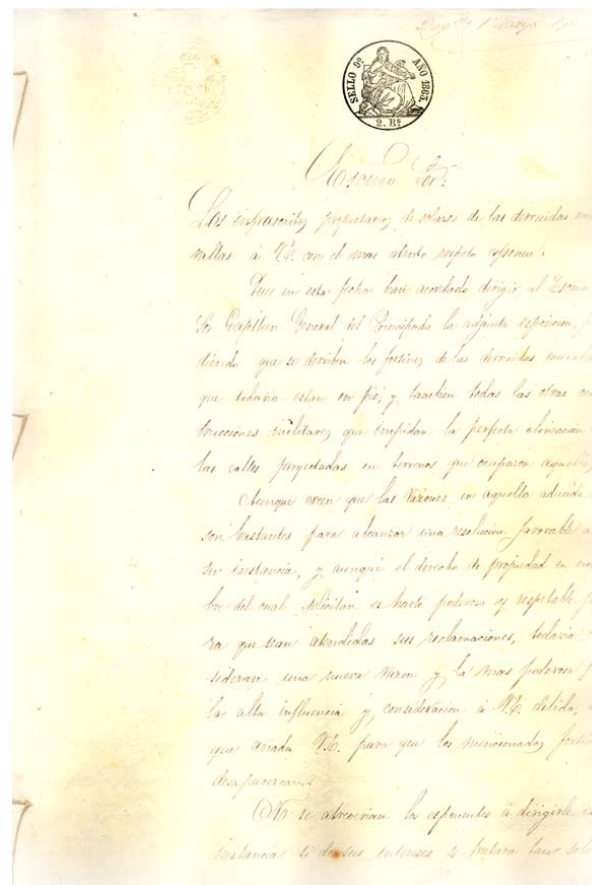 SELLO 9º AÑO 1863.
2. Rs
Escmo Sor:
Los infrascritos propietarios de solares de las derruidas mu
rallas á V.E. con el mas atento respeto esponen:
Que en esta fecha han acordado dirigir al Escmo
Sr Capitan General del Principado la adjunta esposicion, pi
diendo que se derriben los fortines de las derruidas murallas
que todavia estan en pié, y tambien todas las otras cons
trucciones militares que impidan la perfecta alineacion
las calles proyectadas en terrenos que ocuparon aquellas
Aunque creen que las razones en aquella aducidas
son bastantes para alcanzar una resolucion favorable a
su instancia, y aunque el derecho de propiedad en nom
bre del cual solicitan es harto poderoso y respetable pa
ra que sean atendidas sus reclamaciones, todavia
sideran una nueva razon y la mas poderosa
la alta influencia y consideracion á V.E. debida,
que añada V.E. para que los mencionados fortines
desaparezcan.
No se atreverian los esponentes á dirigirle
instancia si de sus intereses se tratara tan solo